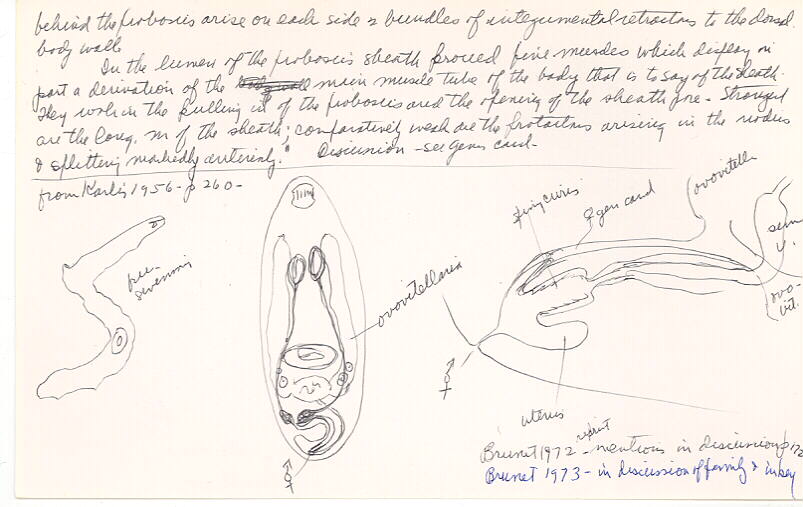 behind the proboscis arise on each side 2 bundles of integumental retractors to the dorsal
body wall
In the lumen of the proboscis sheath proceed fine muscles which display in
part a derivation of the main muscle tube of the body that is to say of the sheath.
They work in the pulling in of the proboscis and the opening of the sheath pore - Strongest
are the long. m of the sheath; comparatively weak are the protractors arising in the
& splitting markedly anteriorly." Discussion - see genus card -
from Karling 1956 - p 260 -
ovovitell
finy cirrus
♀ gen canal
sem
v.
ovo-
vit.
ovovitellaria
uterus
Brunet 1972 - reprint mentions in discussion p 172
Brunet 1973 - in discussion of family & in key